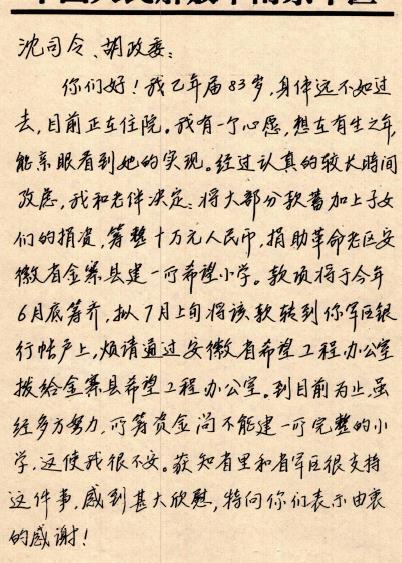 沈司令、胡政委：
你们好！我已年届83岁，身体远不如过
去，目前正在住院。我有一个心愿，想在有生之年，
能亲眼看到她的实现。经过认真的较长时间
考虑，我和老伴决定：将大部分款蓄加上子女
们的捐资，筹整十万元人民币，捐助革命老区安
徽省金寨县建一所希望小学。款项将于今年
6月底筹齐，拟7月上旬将该款转到你军区银
行帐户上，烦请通过安徽省希望工程办公室
拨给金寨县希望工程办公室。到目前为止，虽
经多方努力，所筹资金尚不能建一所完整的小
学，这使我很不安。获知省里和省军区很支持
这件事，感到甚大欣慰，特向你们表示由衷
的感谢！